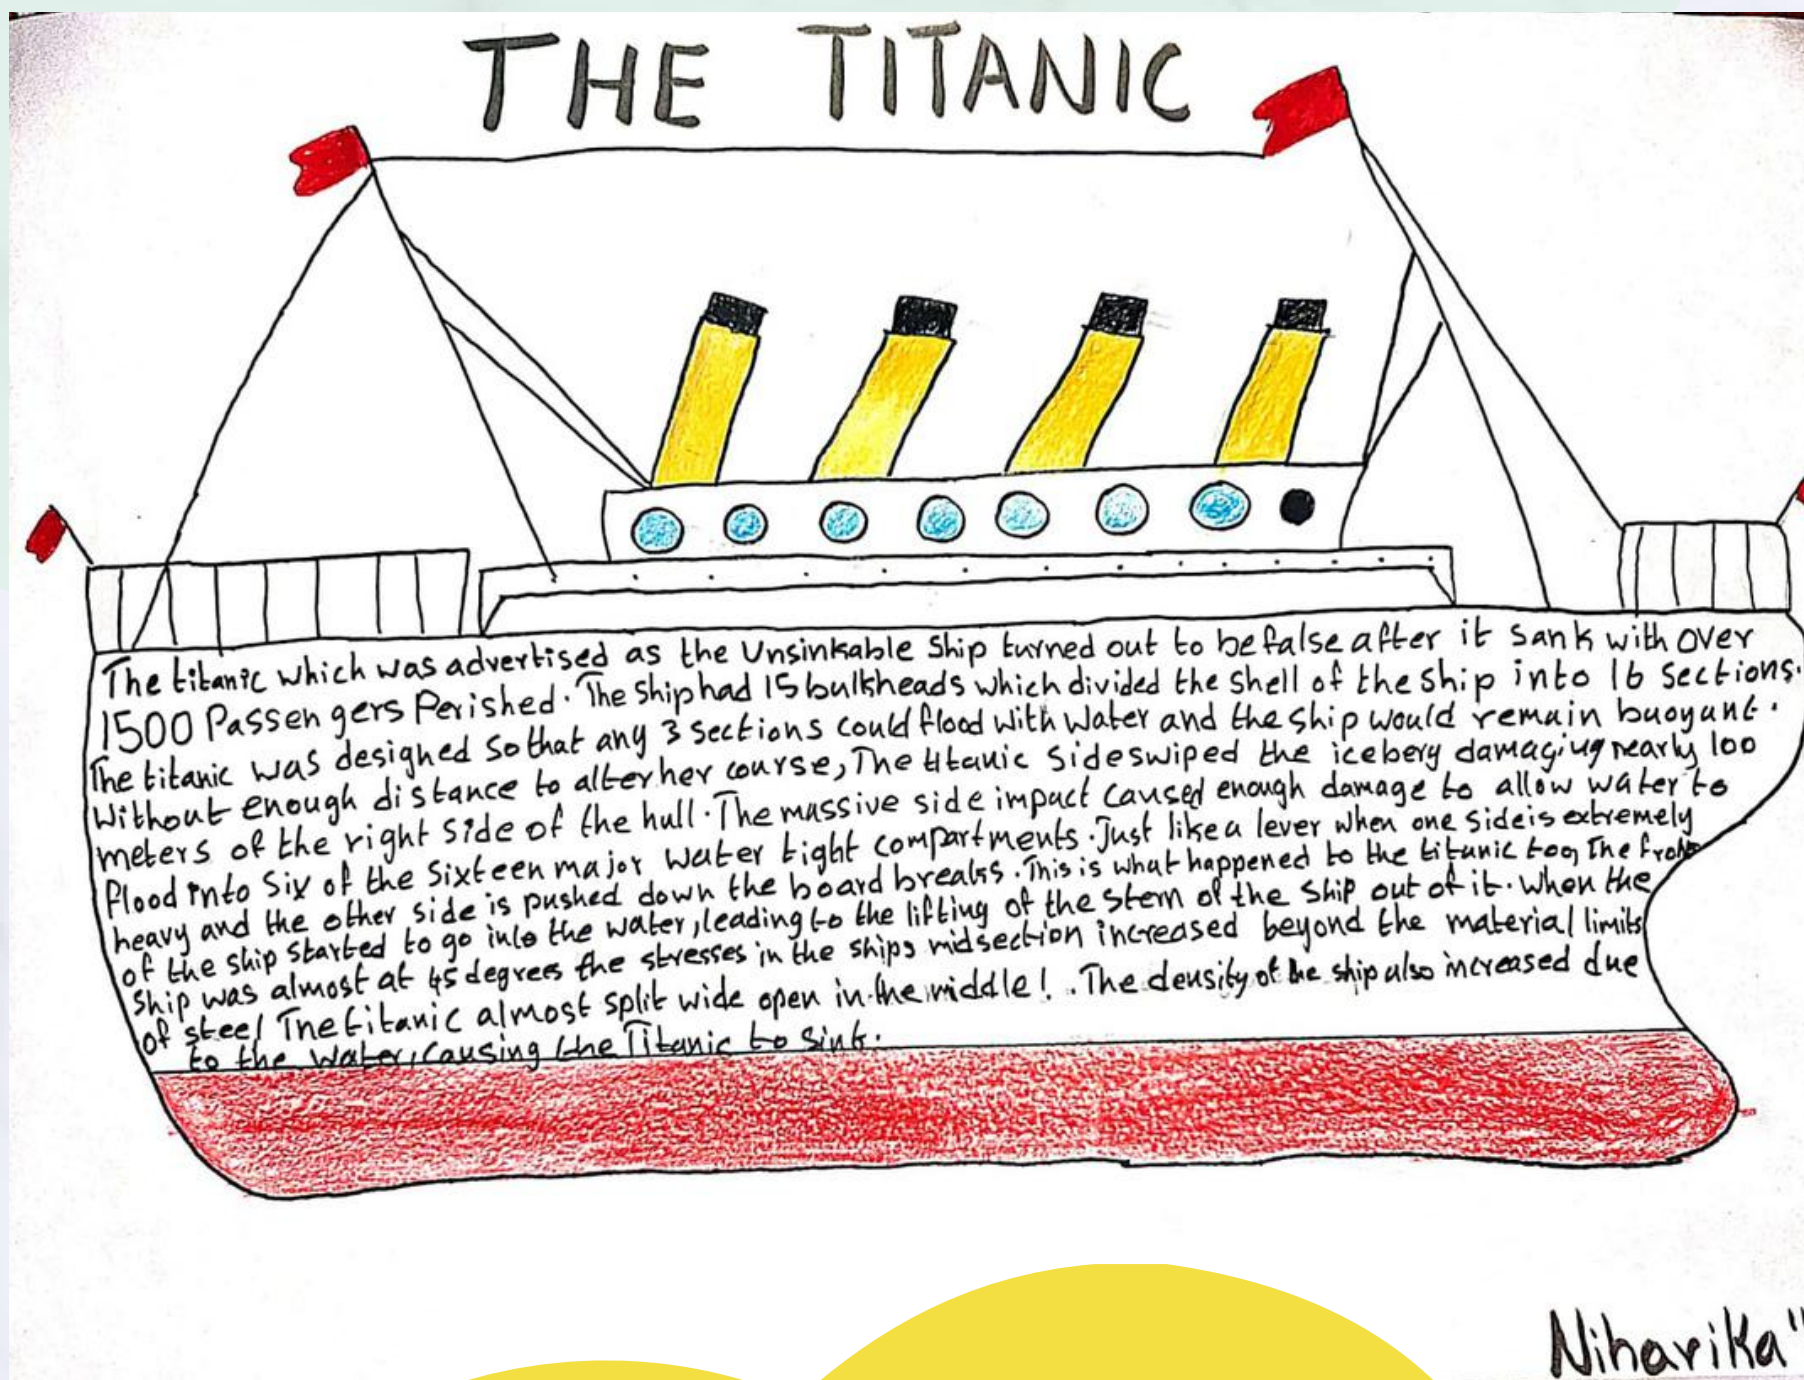 THE TITANIC
The titanic which was advertised as the Unsinkable Ship turned out to be false after it sank with over
1500 Passengers Perished. The ship had 15 bulkheads which divided the shell of the ship into 16 sections.
The titanic was designed so that any 3 sections could flood with water and the ship would remain buoyant.
Without enough distance to alter her course, The titanic sideswiped the iceberg damaging nearly 100
meters of the right side of the hull. The massive side impact caused enough damage to allow water to
flood into Six of the Sixteen major water tight compartments. Just like a lever when one side is extremely
heavy and the other side is pushed down the board breaks. This is what happened to the titanic too, The front
of the ship started to go into the water, leading to the lifting of the stern of the ship out of it. When the
ship was almost at 45 degrees the stresses in the ships midsection increased beyond the material limits
of steel The titanic almost split wide open in the middle! . The density of the ship also increased due
to the water, causing the Titanic to sink.
Niharika"